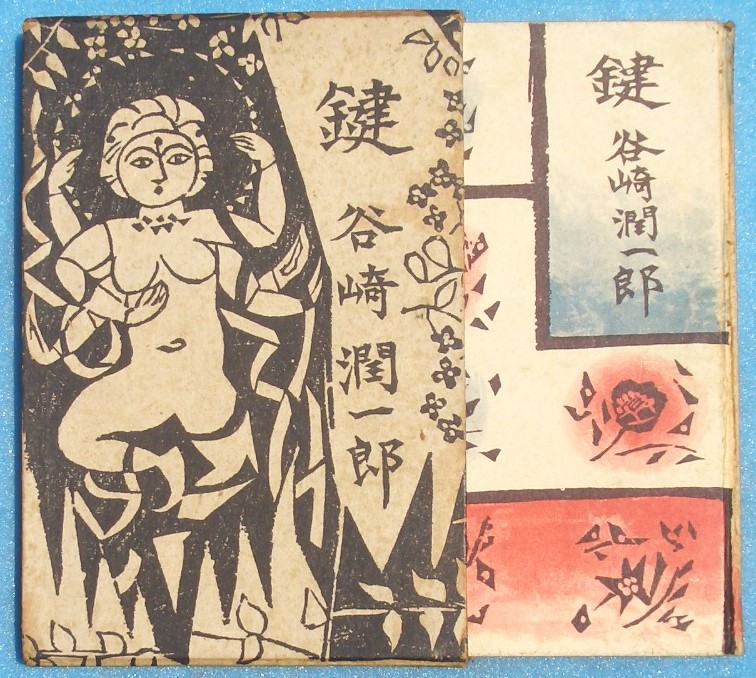 鍵
谷崎潤一郎
鍵
谷崎潤一郎